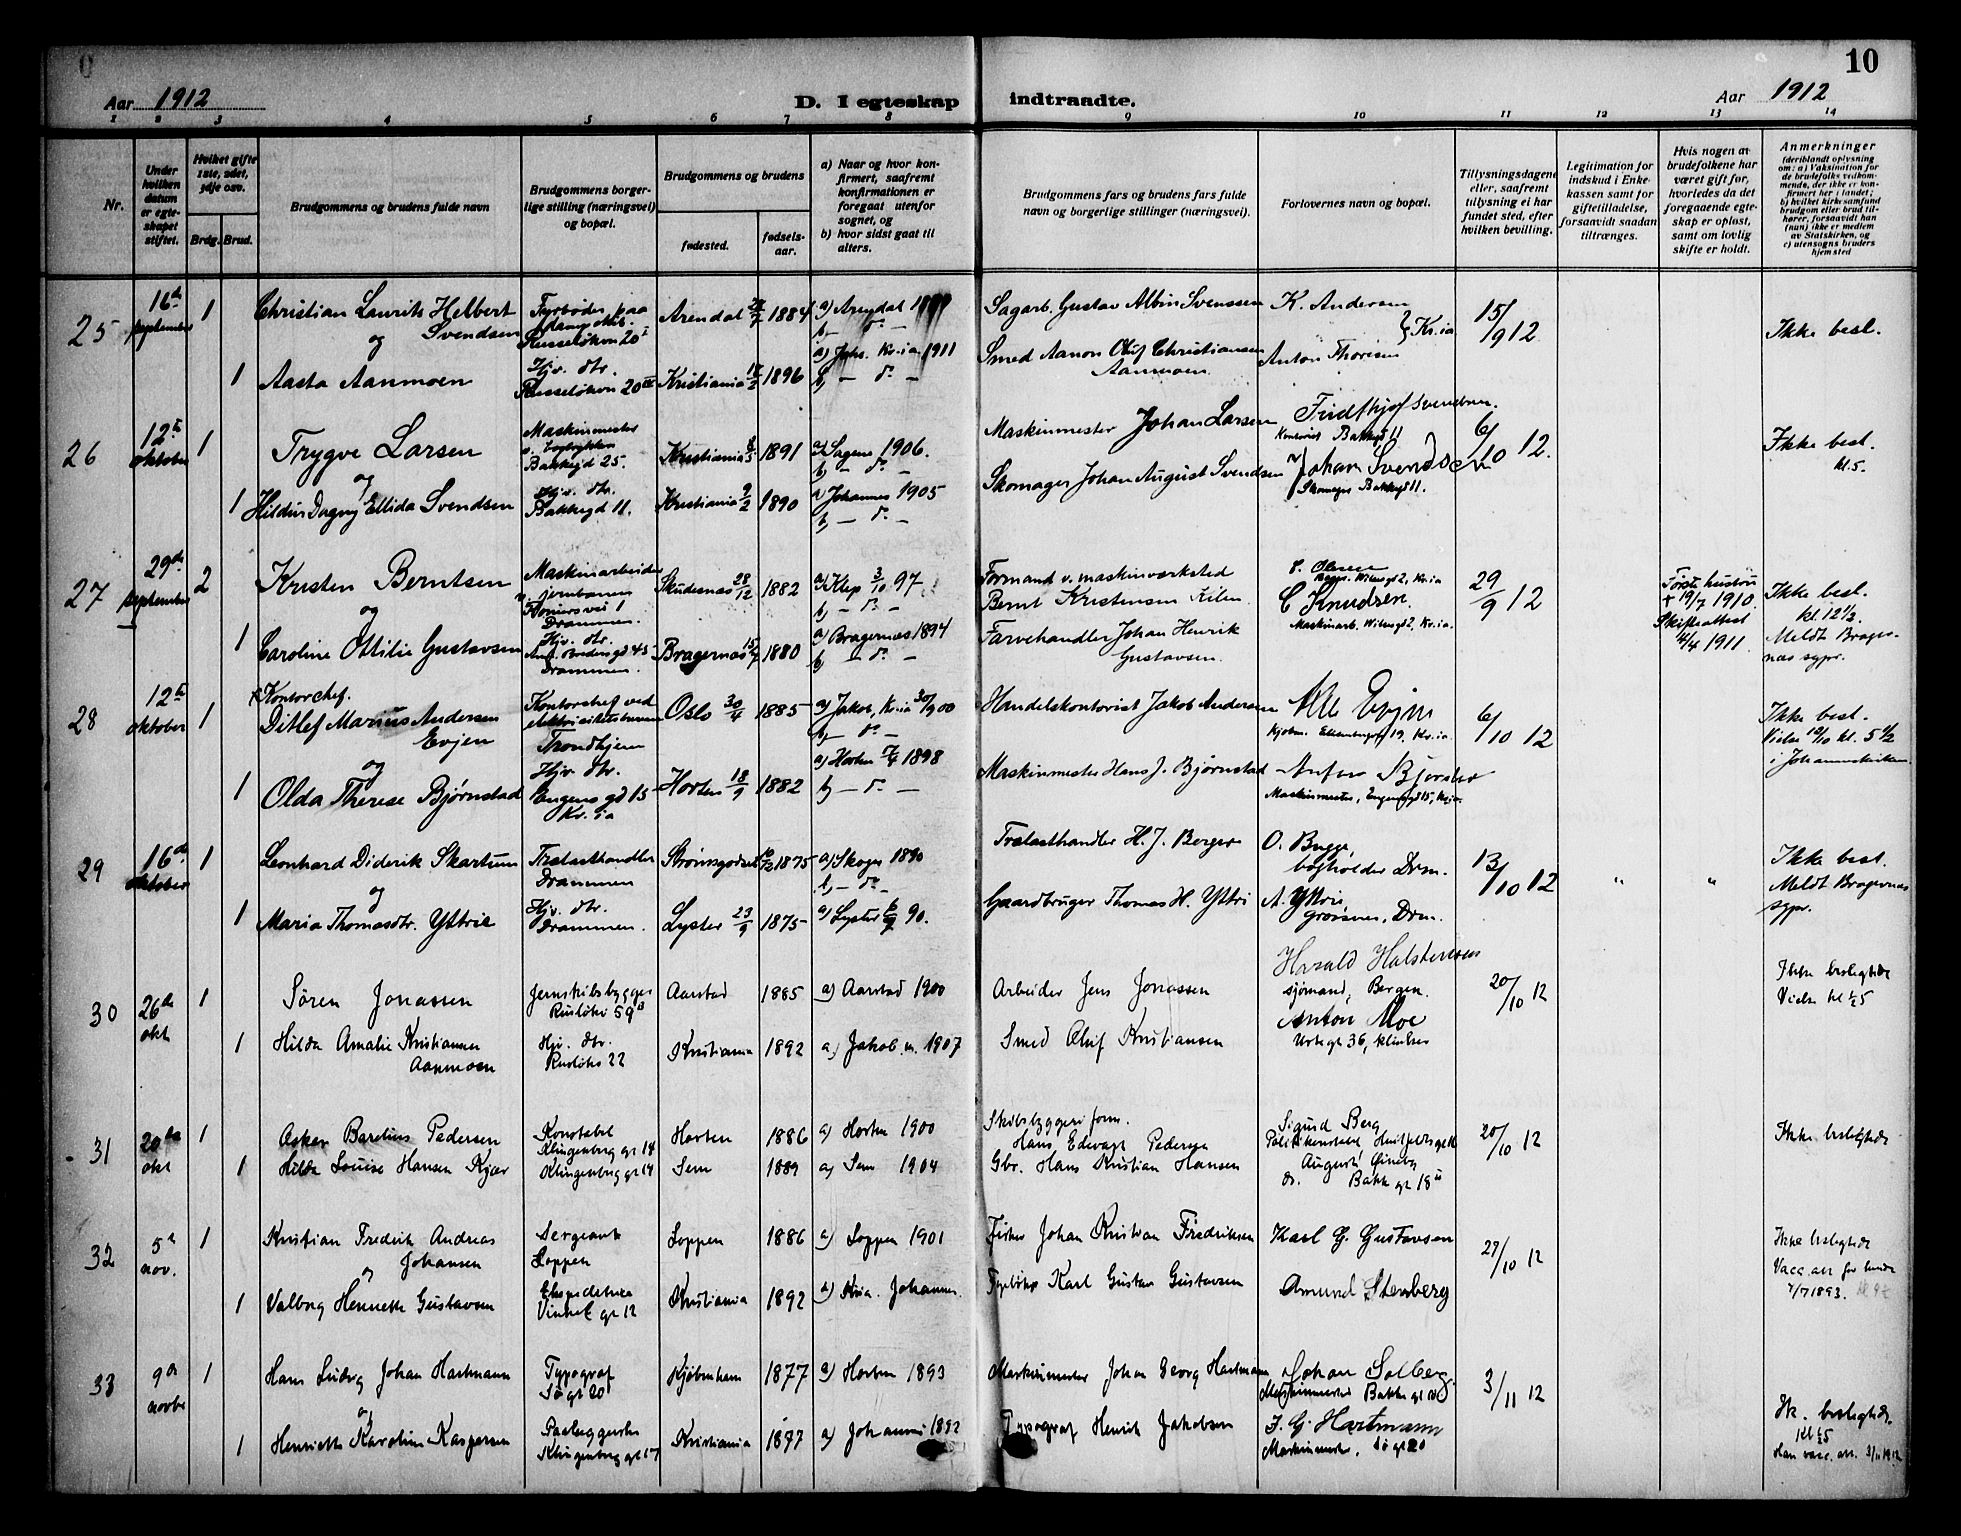 10
Aar 1912
D. I egteskap
indtraadte.
Aar 1912
1 2 3 4 5 6 7 8 9 10 11 12 13 14
Nr.
Under hvilken datum er egteskapet stiftet.
Hvilket gifte 1ste, 2det, 3dje osv.
Brdg. Brud.
Brudgommens og brudens fulde navn
Brudgommens borgerlige stilling (næringsvei) og bopæl.
Brudgommens og brudens
fødested.
fødselsaar.
a) Naar og hvor konfirmert, saafremt konfirmationen er foregaat utenfor sognet, og
b) hvor sidst gaat til alters.
Brudgommens fars og brudens fars fulde navn og borgerlige stillinger (næringsvei).
Forlovernes navn og bopæl.
Tillysningsdagene eller, saafremt tillysning ei har fundet sted, efter hvilken bevilling.
Legitimation for indskud i Enkekassen samt for giftetilladelse, forsaavidt saadan tiltrænges.
Hvis nogen av brudefolkene har været gift før, hvorledes da det foregaaende egteskap er opløst, samt om lovlig skifte er holdt.
Anmerkninger
(deriblandt oplysning om: a) Vaksination for de brudefolks vedkommende, der ikke er konfirmert her i landet; b) hvilket kirkesamfund brudgom eller brud tilhører, forsaavidt han (hun) ikke er medlem av Statskirken, og c) utensogns bruders hjemsted
25 16de september 1 Christian Laurits Helbert Svendsen Fyrbøter paa Russeløkvn 20 Arendal 1884 a) Arendal Sagarb. Gustav Albin Svenssen K. Andersen 15/9 12 Ikke besl.
og
b) — do —
Kr.ia
1 Aasta Aanmoen Hjv. dtr. Russeløkvn 20 Kristiania 1896 a) Johs. Kr.ia 1911 Smed Aanon Oluf Christiansen Aanmoen Anton Thoresen
b) — do —
26 12te oktober 1 Trygve Larsen Maskinmester Bakkegd 25. Kristiania 1891 a) Sagene 1906. Maskinmester Johan Larsen Fridthjof Svendsen. Kontorist Bakkegd 11 6/10 12. Ikke besl. kl. 5.
og
b) — do —
1 Hildur Dagny Ellida Svendsen Hjv. dtr. Bakkegd 11. Kristiania 9/2 1890 a) Johannes 1905 Skomager Johan August Svendsen Johan Svendsen Skomager Bakkegd 11.
b) — do —
27 29de september 2 Kristen Berntsen Maskinarbeider v. jernbanen 1 Drammen. Skudesnæs 28/12 1882 a) Klep 3/10 97 Formand v. maskinværksted Bernt Kristensen C. Olsen Wilsesgd 2, Kr.ia 29/9 12 Første hustru + 19/7 1910. Skifteattest 14/4 1911 Ikke besl. kl 12½. Meldt Bragernæs sypr.
og
b) — do —
1 Caroline Ottilie Gustavsen Hjv. dtr. Drammen. Bragernæs 1880 a) Bragernæs 1894 Farvehandler Johan Henrik Gustavsen. C Knudsen. Maskinarb. Wilsesgd 2, Kr.ia.
b) — do —
28 12te oktober 1 Kontorchef. Ditlef Marius Andersen Evjen Kontorchef ved elektricitetsbureau Trondhjem Oslo 30/4 1885 a) Jakob, Kr.ia 30/9 00 Handelskontorist Jakob Andersen Evjen 19. Kr.ia. 6/10 12 Ikke besl. Vielse 12/10 kl. 5½ i Johanneskirken
og
b) — do —
1 Olda Therese Bjørnstad Hjv. dtr. Engensgd 15 Kr.ia Horten 18/9 1882 a) Horten 1898 Maskinmester Hans J. Bjørnstad Maskinmester, Engensgd 15, Kr.ia.
b) — do —
29 16de oktober 1 Leonhard Diderik Skartum Trælasthandler Drammen Strømsgodset 1875 a) Skoger 1890 Trælasthandler H. J. Berger O. Bugge, bogholder Drm. 13/10 12 " " Ikke besl. Meldt Bragernæs sypr.
og
b) — do —
1 Maria Thomasdtr. Yttrie Hjv. dtr. Drammen. Lyster 23/9 1875 a) Lyster 90. Gaardbruger Thomas H. Yttri A. Yttri, grosserer, Drm.
30 26de okt 1 Søren Jonassen Jernskibsbygger Rusløkv 59 Aarstad 1885 a) Aarstad 1900 Arbeider Jens Jonassen Harald Halstensen sjømand, Bergen. 20/10 12 Ikke beslegtede Vielse kl ½5
1 Hilda Amalie Kristiansen Aanmoen Hjv. dtr. Rusløkv 22 Kristiania 1892 a) Jakob. k. 1907 Smed Oluf Kristiansen Anton Moe Urtegt 36,
31 20de okt 1 Oskar Barelius Pedersen Konstabel Klingenberg gt 14 Horten 1886 a) Horten 1900 Skibsbyggeri form. Hans Edvart Pedersen Sigurd Berg Politikonstabel 20/10 12 Ikke beslegtede
1 Hilda Louise Hansen Kjær Klingenberg gt 14 Sem 1889 a) Sem 1904 Gbr. Hans Kristian Hansen August do. Bakk gt 18
32 5te nov. 1 Kristian Fredrik Andreas Johansen Sergeant Loppen Loppen 1886 a) Loppen 1901 Fisker Johan Kristian Fredriksen Karl G. Gustavsen 27/10 12 Ikke beslegtede Vacc. att for
1 Valborg Henriette Gustavsen Ekspeditrice Vinkel gt 12 Kristiania 1892 a) Kria. Johannes. Karl Gustav Gustavsen Amund Stenberg 7/7 1893.
33 9de novbr 1 Hans Ludvig Johan Hartmann Typograf Sø gt 20 Kjøbenhavn 1877 a) Horten 1893 Maskinmester Johan Georg Hartmann Johan Solberg. Maskinmester Bakke gt 3/11 12
og
1 Henriette Karoline Kaspersen Klingenberg gt 17 Kristiania 1877 a) Johannes 1892 Typograf Henrik Jakobsen J. G. Hartmann Maskinmest. Sø gt 20 Ik. beslegtede. Kl ½5 Han vacc. att. 3/11 1912